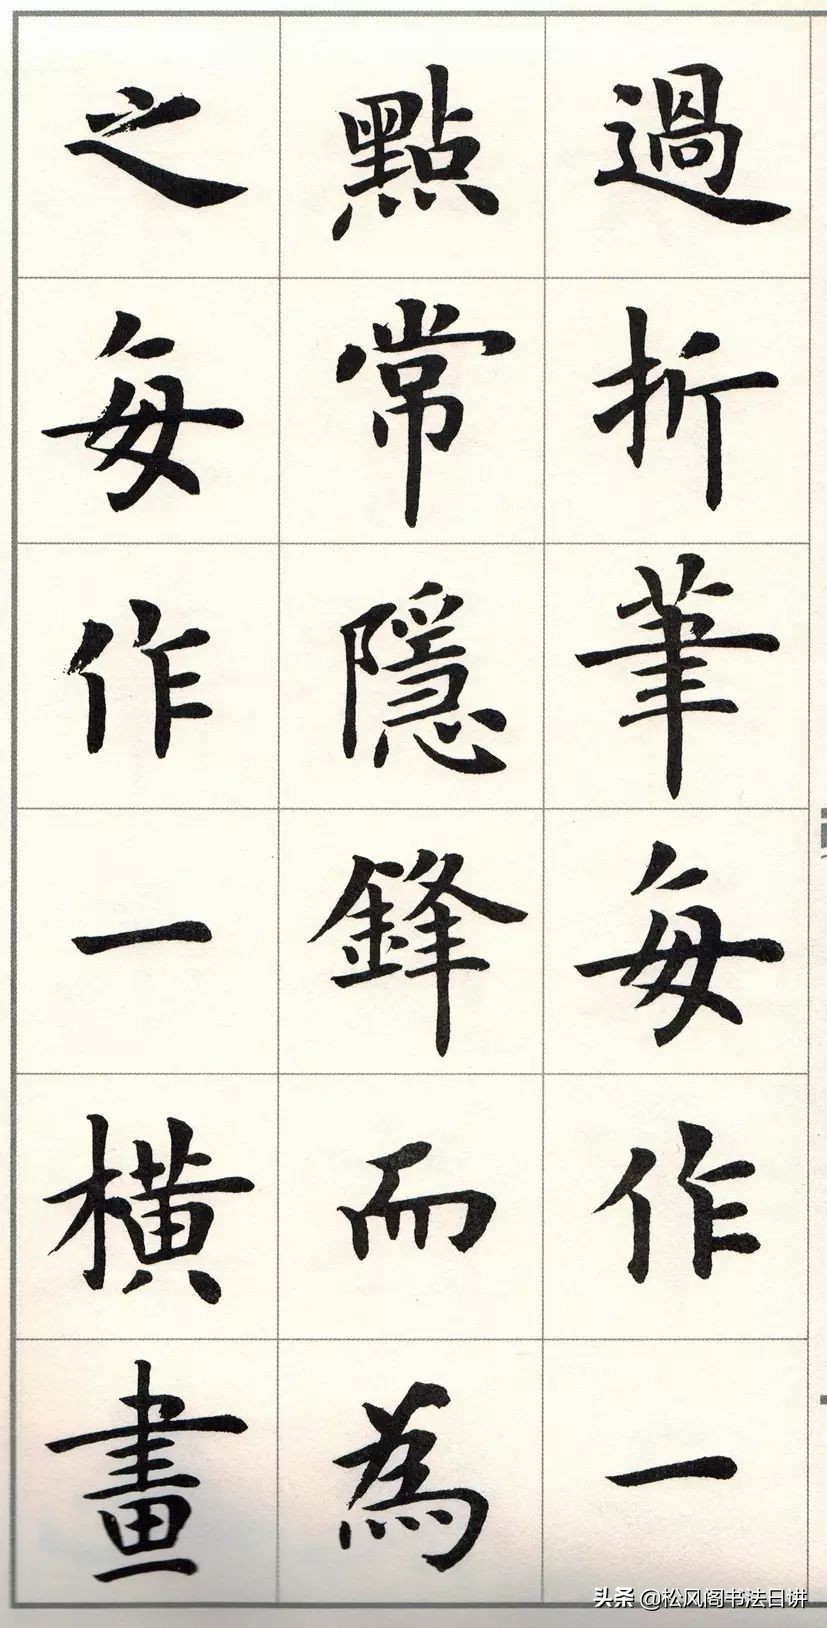 過折筆每作一
點常隱鋒而為
之每作一橫畫
头条 @松风阁书法日讲